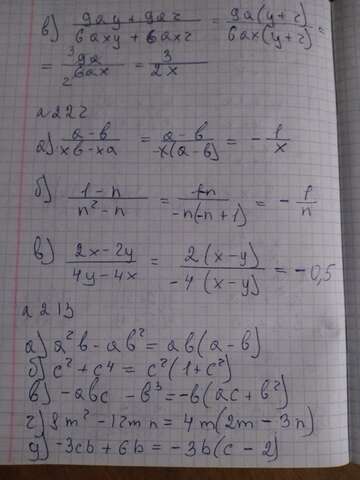 в) (9ay + 9az)/(6axy + 6axz) = 9a(y + z)/6ax(y + z) =
= 9a/6ax = 3/2x
№ 222
а) (a - b)/(xb - xa) = (a - b)/-x(a - b) = - 1/x
б) (1 - n)/(n² - n) = (1-n)/-n(-n + 1) = - 1/n
в) (2x - 2y)/(4y - 4x) = 2(x - y)/-4(x - y) = -0,5
№ 213
а) a²b - ab² = ab(a - b)
б) c² + c4 = c²(1 + c²)
в) -abc - b³ = -b(ac + b²)
г) 8m² - 12mn = 4m(2m - 3n)
д) -3cb + 6b = -3b(c - 2)